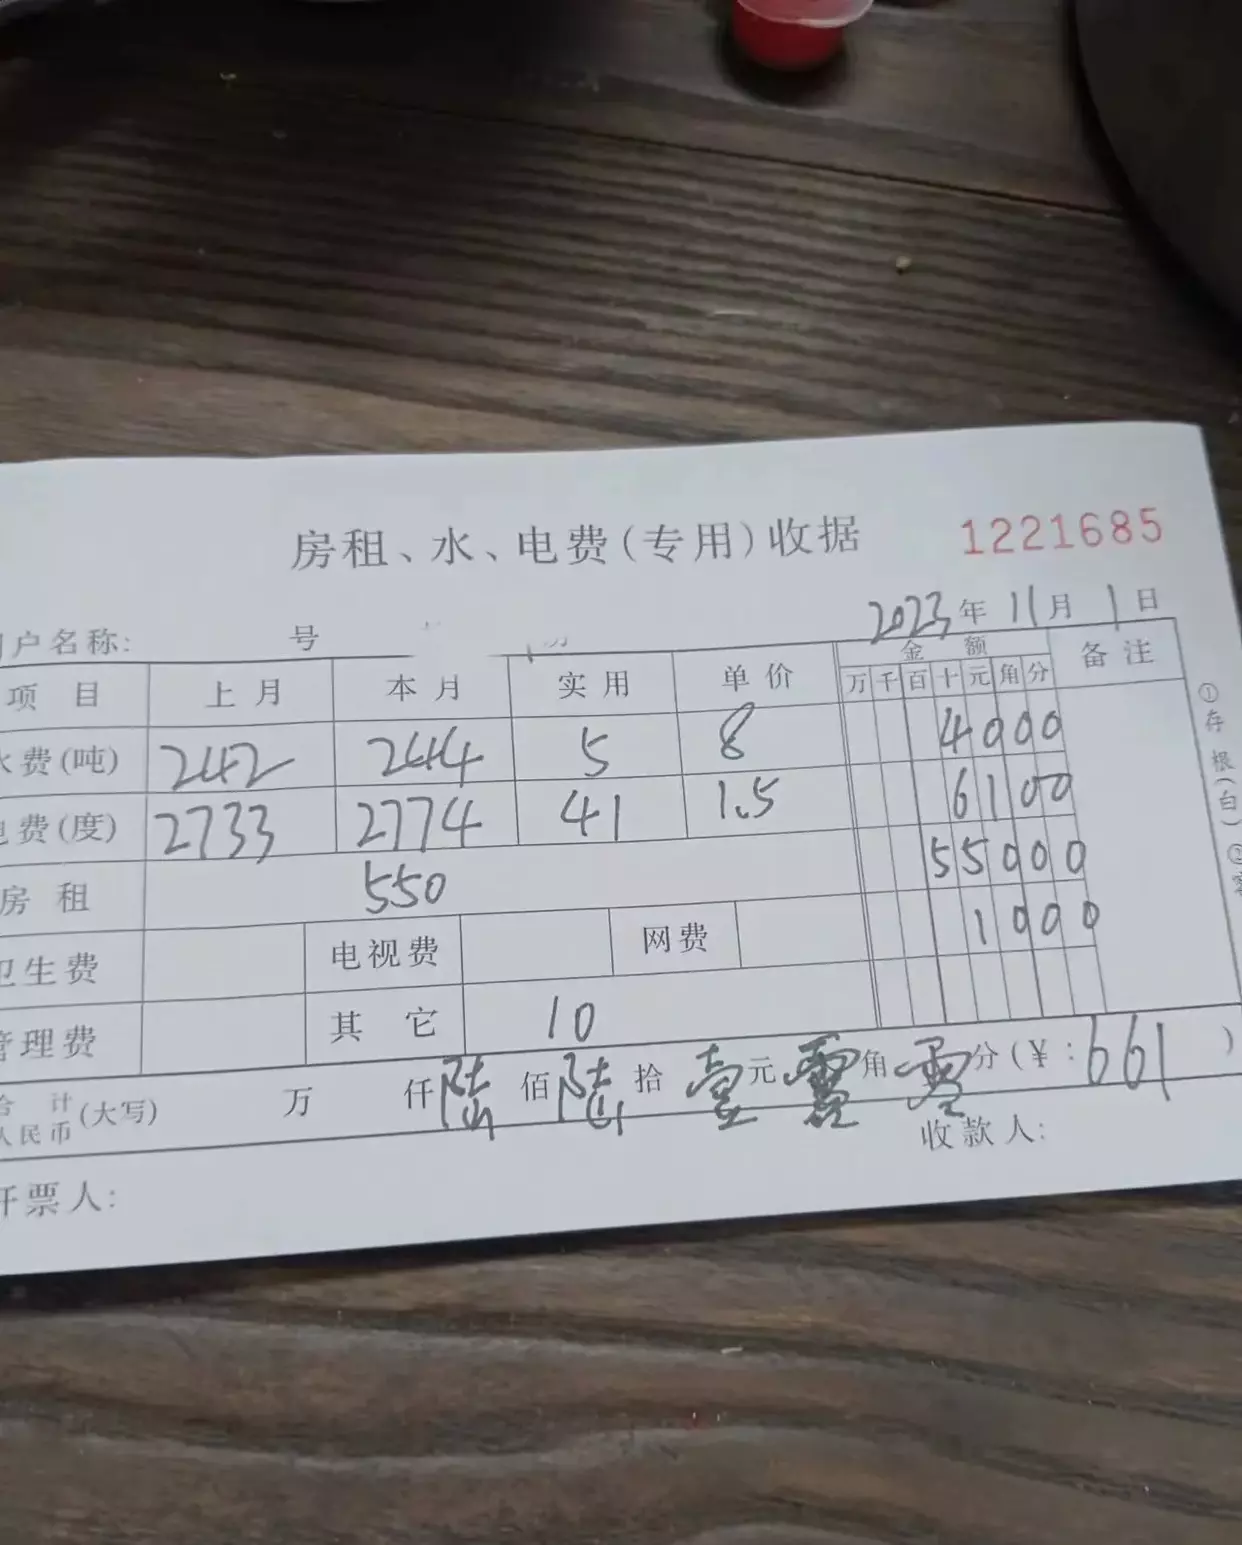 房租、水、电费(专用)收据 1221685
户名称: 号 2023年 11月 1日
项目 上月 本月 实用 单价 金额 备注
万 千 百 十 元 角 分
水费(吨) 242 244 5 8 4000
电费(度) 2733 2774 41 1.5 6100
房租 550 55000
卫生费 电视费 网费 1000
管理费 其它 10
合计人民币(大写) 万 仟 陆佰 陆拾 壹元 零角 零分(¥:661)
开票人: 收款人:
①存根(白)②